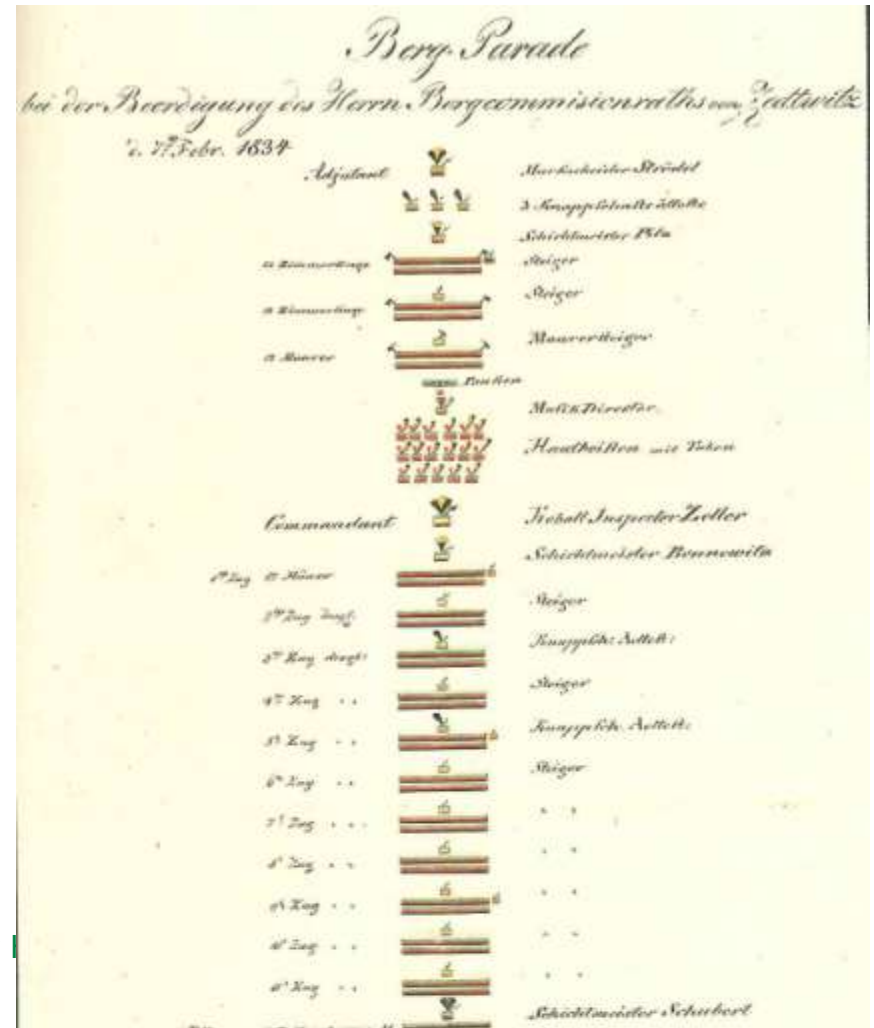 Berg-Parade
bei der Beerdigung des Herrn Bergcommisionraths von Zedtwitz
d. 7t Febr. 1834
Adjutant Markscheider Strödel
3 Knappschaftsälteste
Schichtmeister Pilz
12 Zimmerlinge Steiger
12 Zimmerlinge Steiger
12 Maurer Maurersteiger
Pauken
Musik Director
Hautboisten mit
Commandant Kobalt Inspector Zeller
Schichtmeister Bennewitz
1ter Zug 12 Häuer
2ter Zug desgl. Steiger
3ter Zug desgl: Knappsch: Aeltest:
4ter Zug " " Steiger
5r Zug " " Knappsch. Aeltest:
6r Zug " " Steiger
7r Zug " " " "
8r Zug " " " "
9r Zug " " " "
10r Zug " " " "
11r Zug " " " "
Schichtmeister Schubert